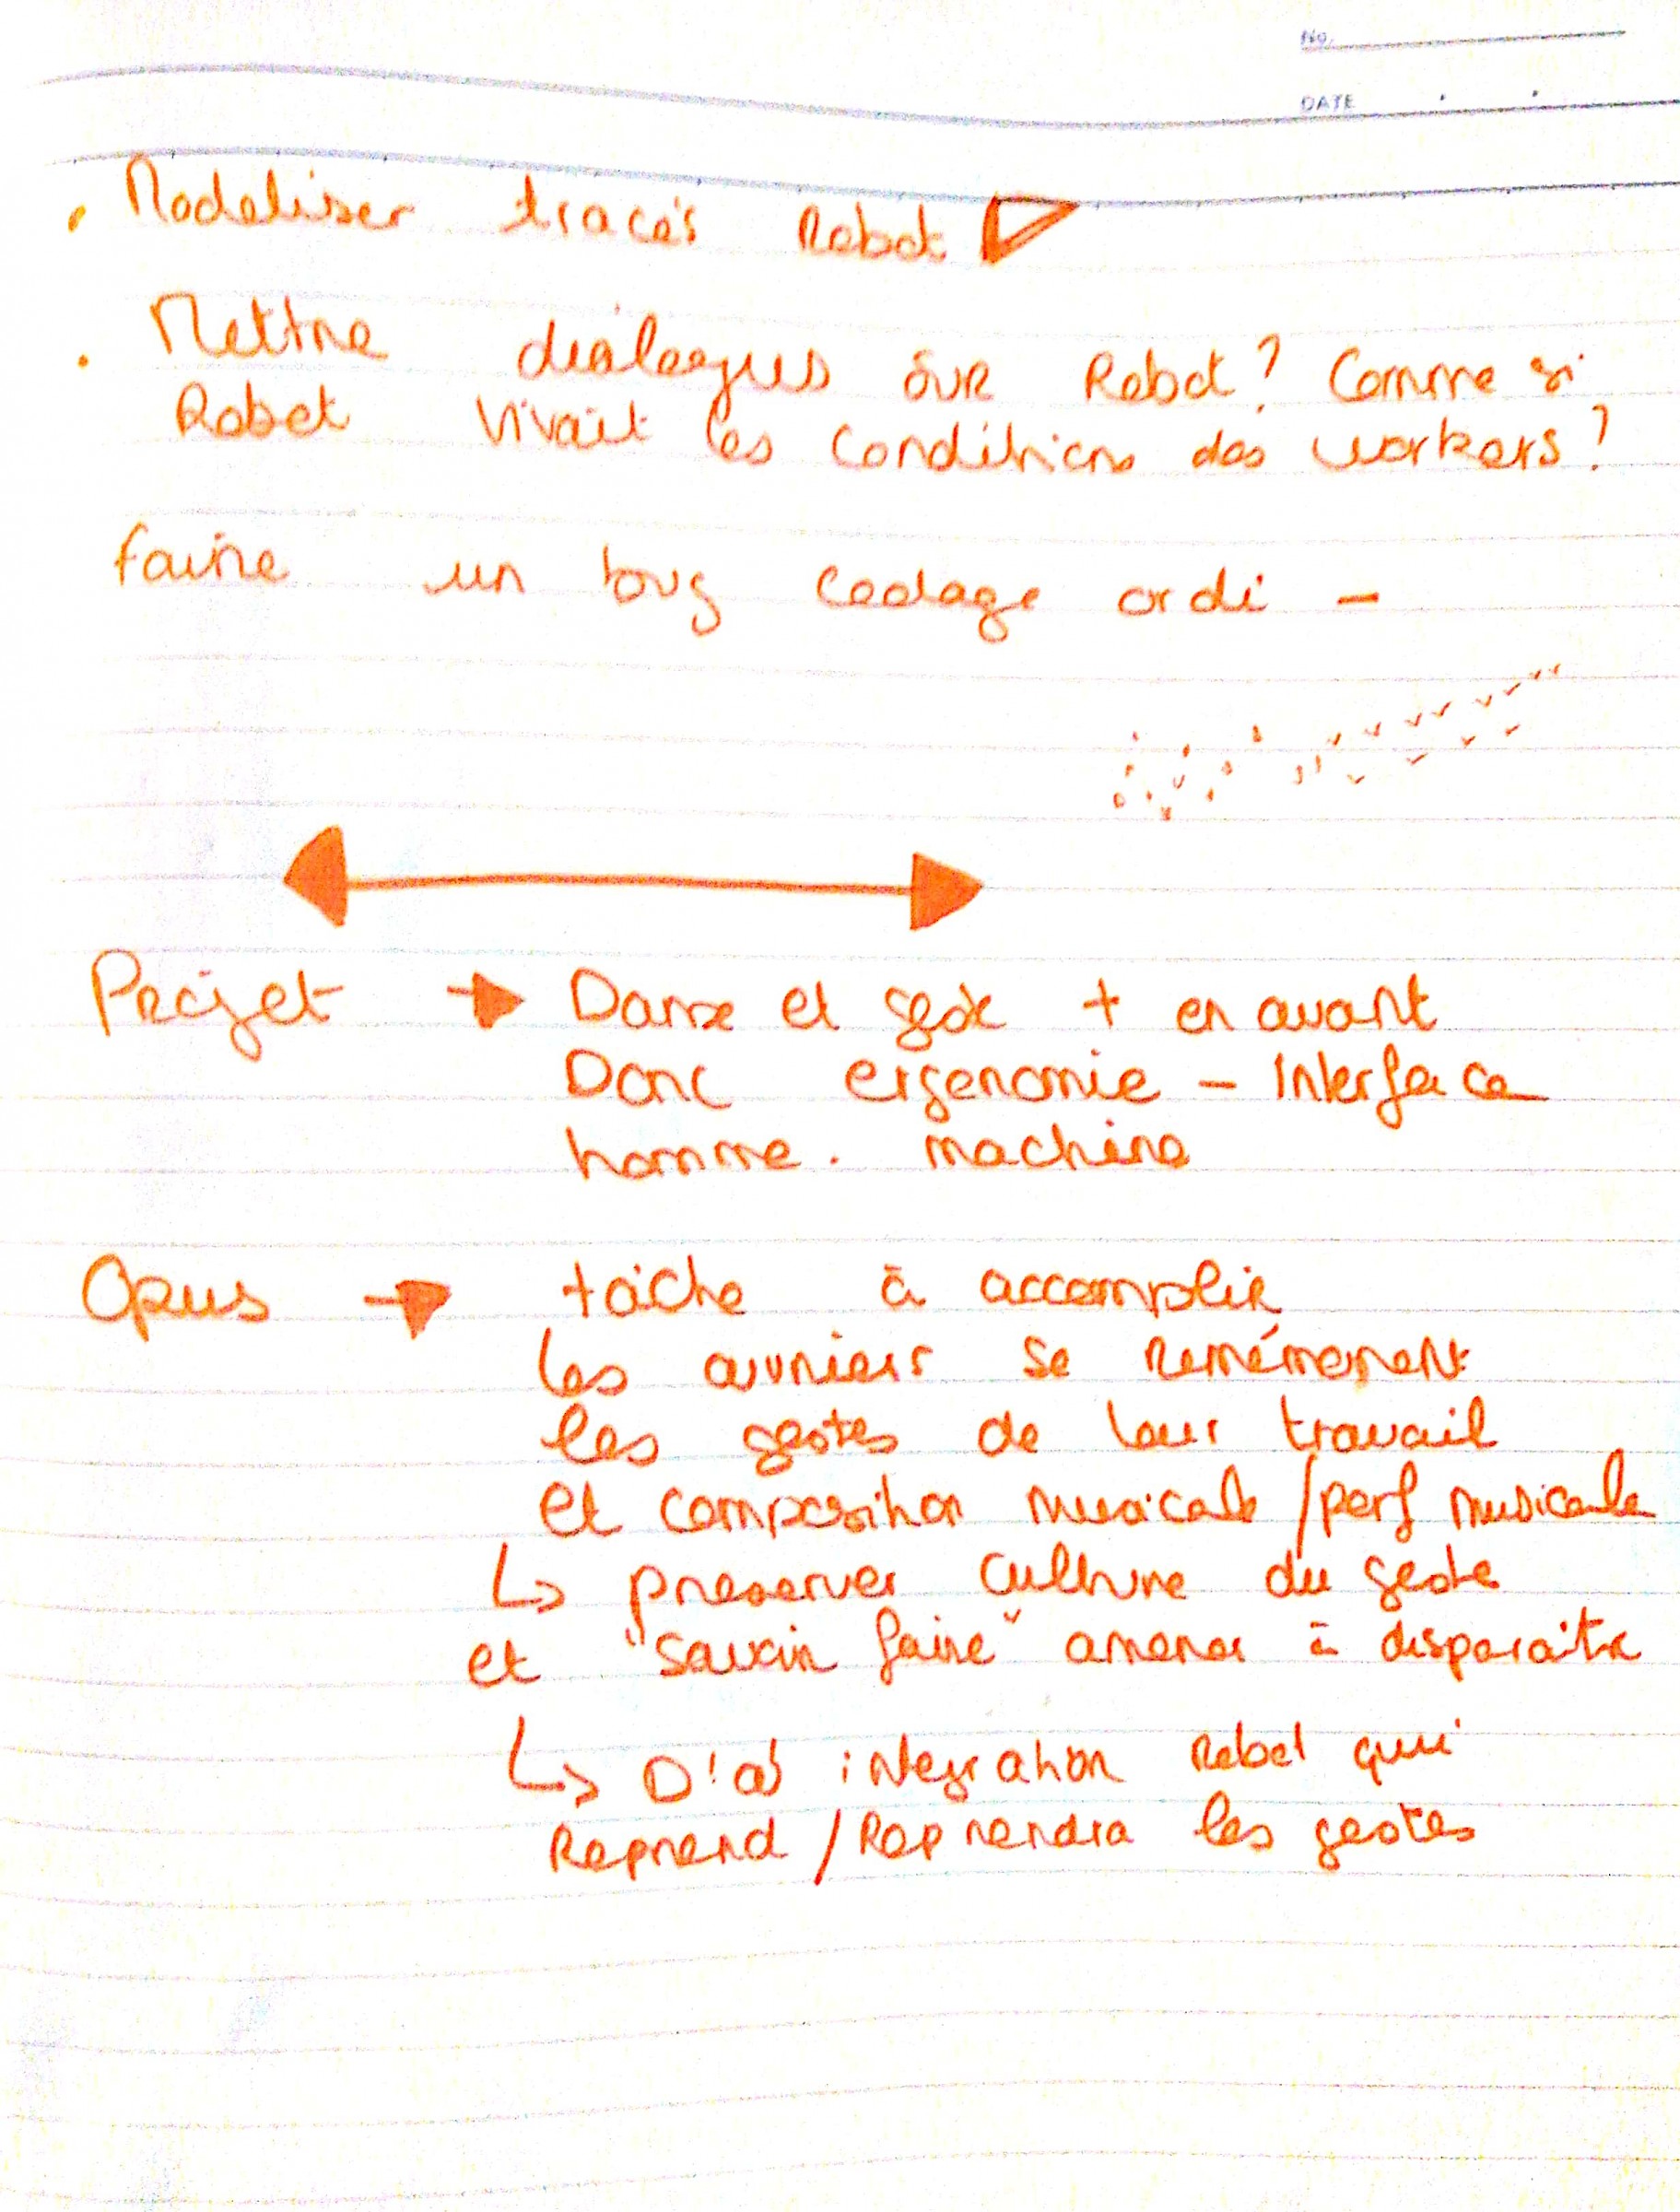 No.
DATE
• Modeliser tracés Robot
• Mettre dialogues sur Robot? Comme si
Robot vivait les conditions des workers?
faire un bug codage ordi -
Projet → Danse et geste + en avant
Donc ergonomie - Interface
homme. machine
Opus → tâche à accomplir
les ouvriers se remémorent
les gestes de leur travail
et composition musicale / perf musicale
↳ preserver culture du geste
et "savoir faire" amener à disparaître
↳ D'où integration Robot qui
Reprend / Reprendra les gestes